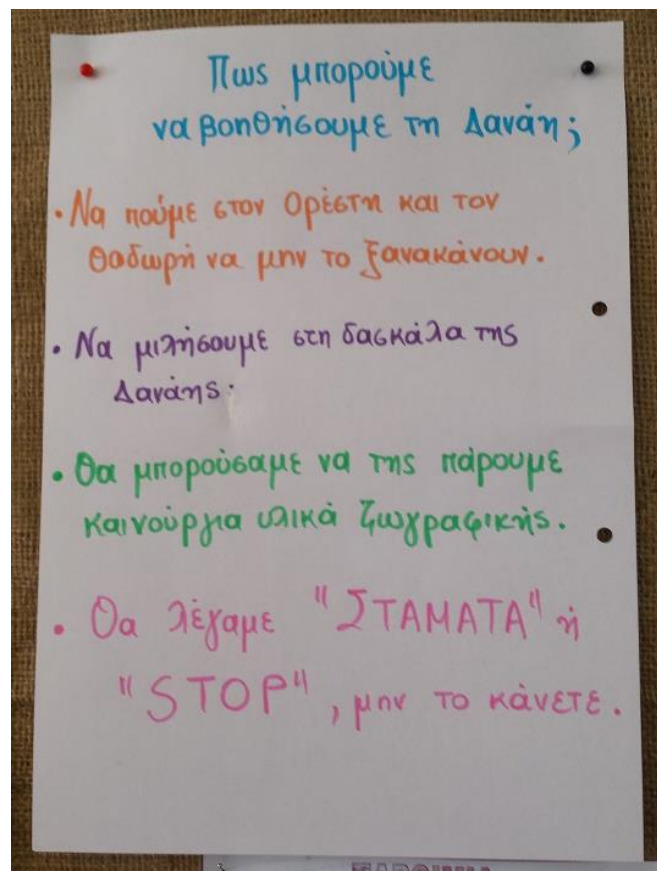 Πως μπορούμε
να βοηθήσουμε τη Δανάη;
• Να πούμε στον Ορέστη και τον
Θοδωρή να μην το ξανακάνουν.
• Να μιλήσουμε στη δασκάλα της
Δανάης.
• Θα μπορούσαμε να της πάρουμε
καινούργια υλικά ζωγραφικής.
• Θα λέγαμε "ΣΤΑΜΑΤΑ" ή
"STOP", μην το κάνετε.